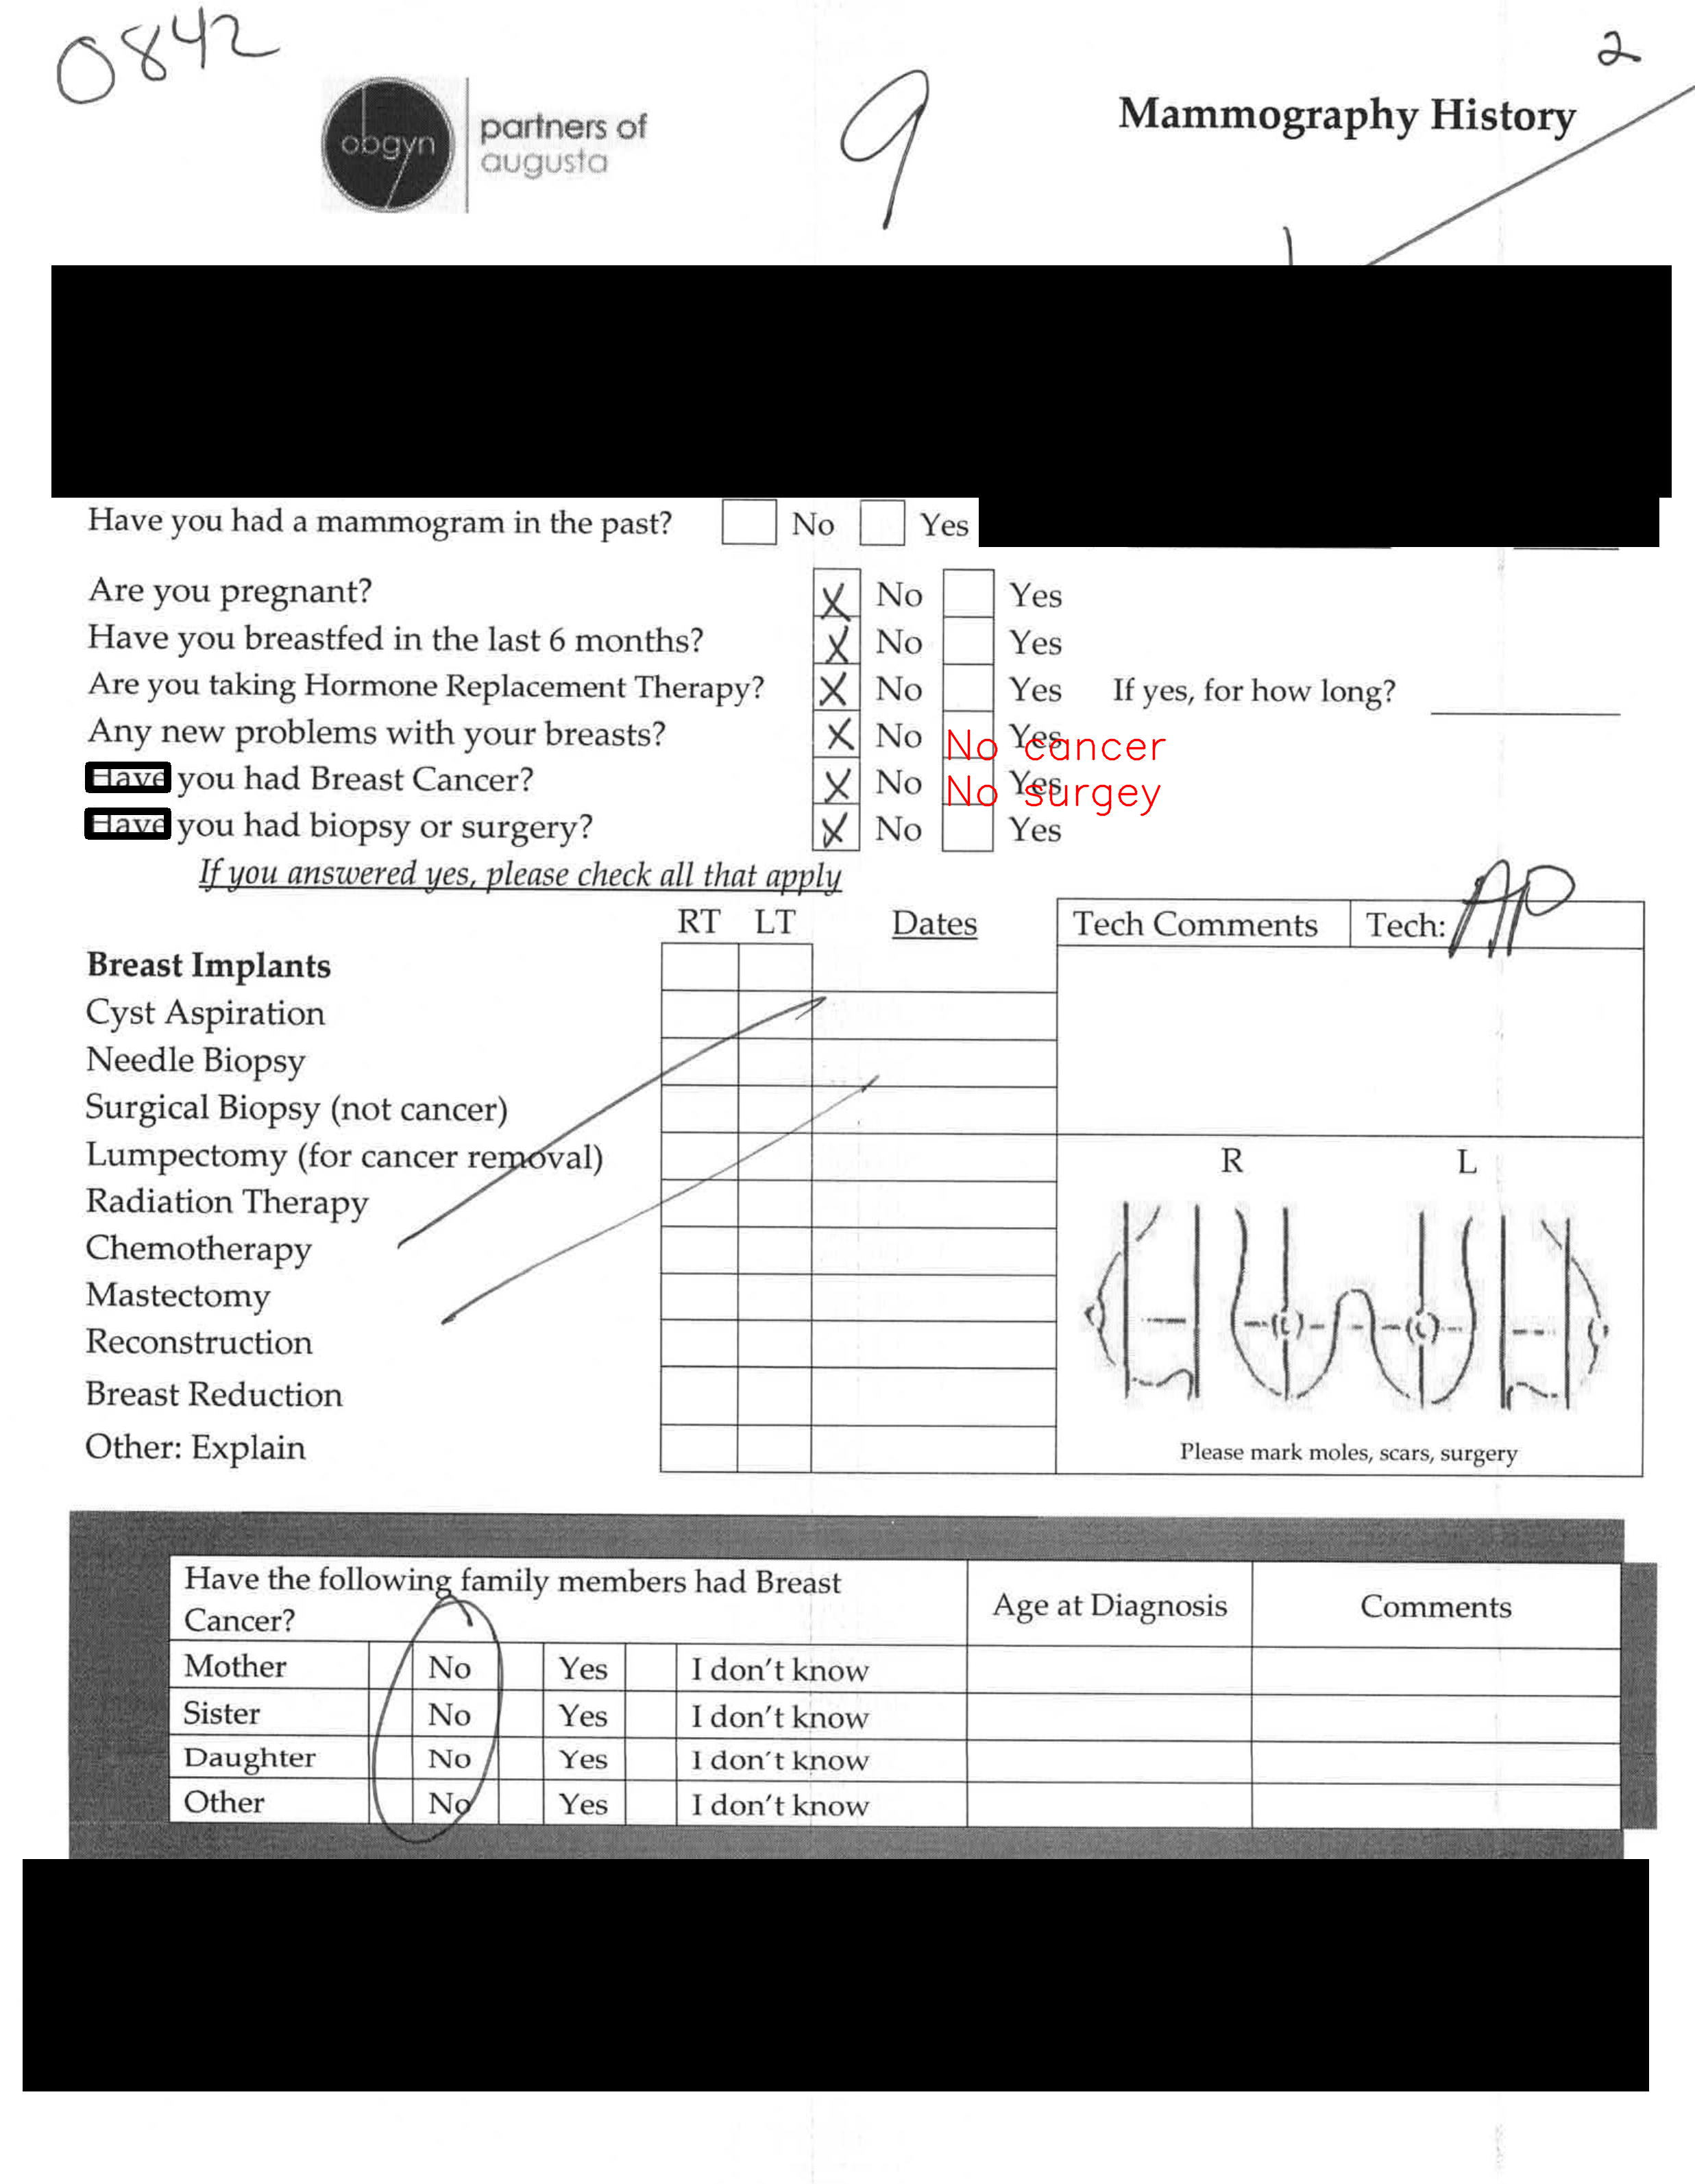 0842
2
obgyn
partners of
augusta
9
Mammography History
Have you had a mammogram in the past? No Yes
Are you pregnant? X No Yes
Have you breastfed in the last 6 months? X No Yes
Are you taking Hormone Replacement Therapy? X No Yes If yes, for how long?
Any new problems with your breasts? X No Yes
No cancer
Have you had Breast Cancer? X No Yes
No surgey
Have you had biopsy or surgery? X No Yes
If you answered yes, please check all that apply
RT LT Dates
Tech Comments Tech: AP
Breast Implants
Cyst Aspiration
Needle Biopsy
Surgical Biopsy (not cancer)
Lumpectomy (for cancer removal)
Radiation Therapy
Chemotherapy
Mastectomy
Reconstruction
Breast Reduction
Other: Explain
R L
Please mark moles, scars, surgery
Have the following family members had Breast
Cancer?
Age at Diagnosis
Comments
Mother No Yes I don't know
Sister No Yes I don't know
Daughter No Yes I don't know
Other No Yes I don't know